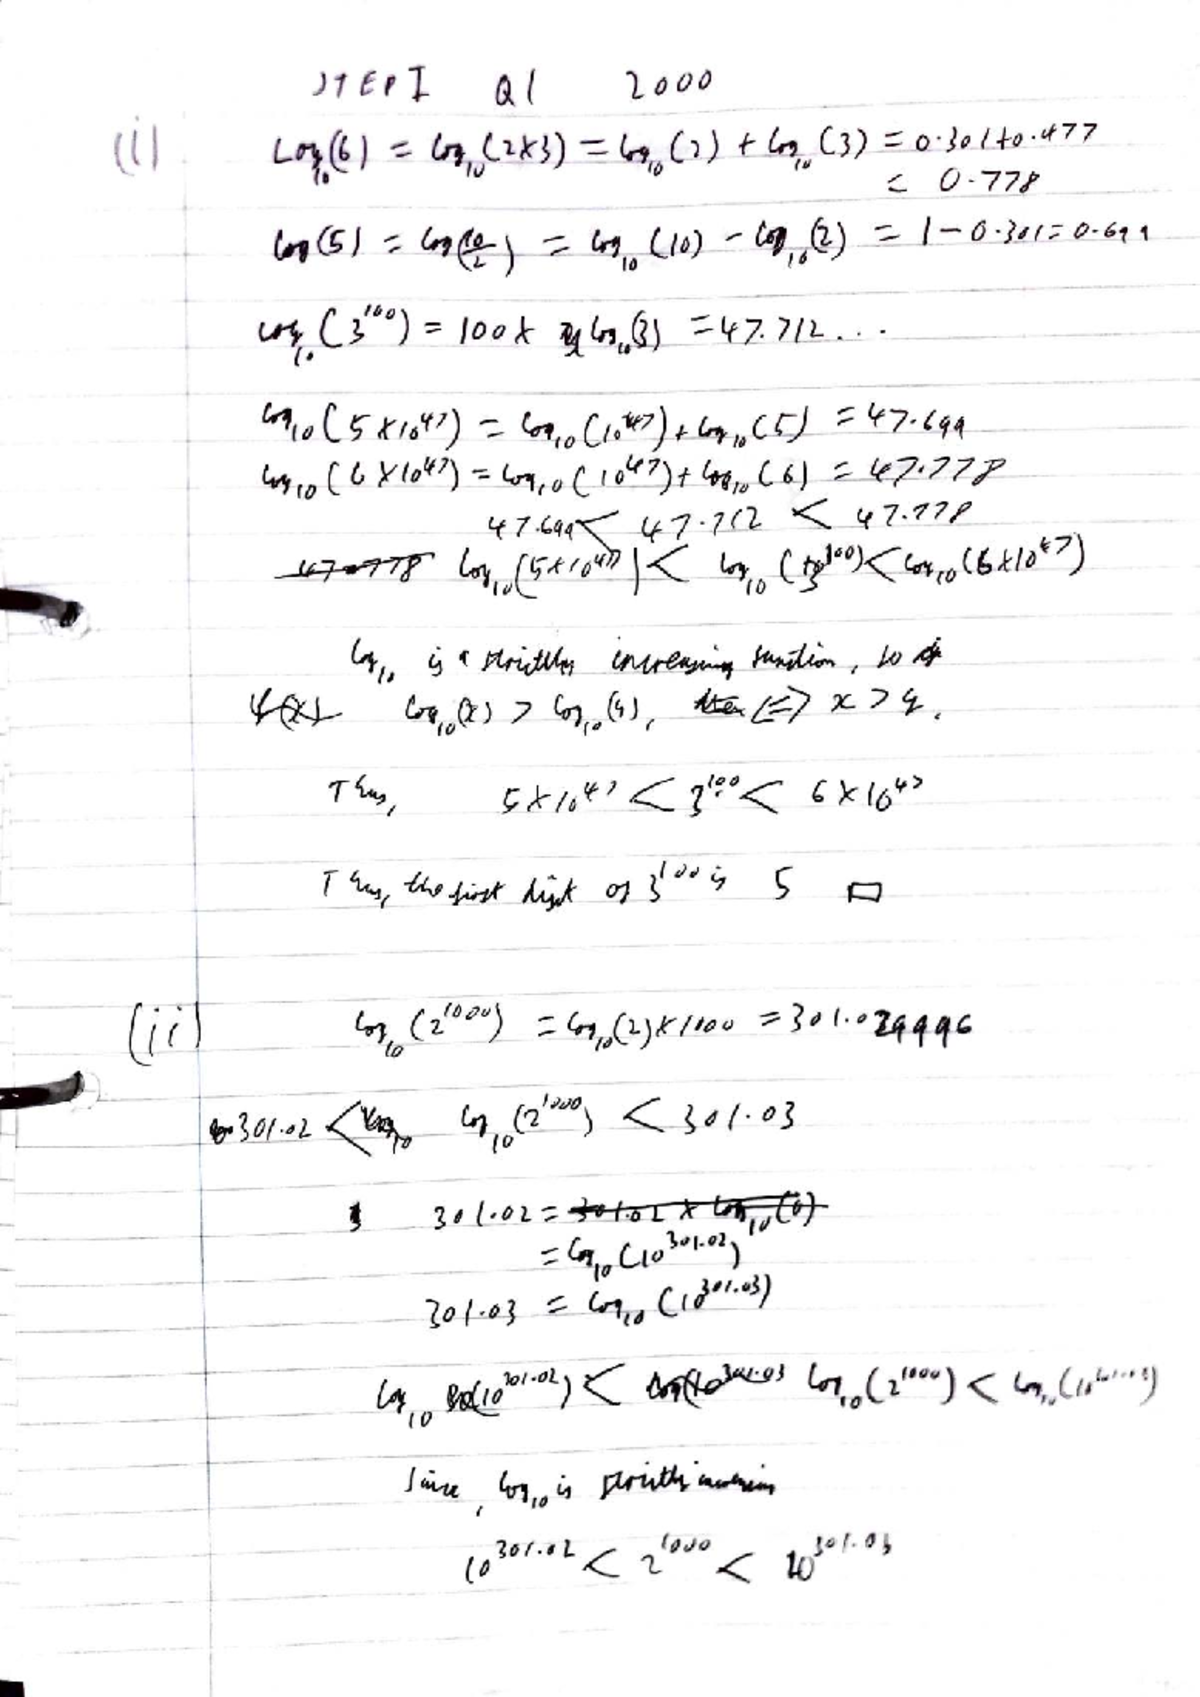 STEP I Q1 2000
(i) Log₁₀(6) = log₁₀(2×3) = log₁₀(2) + log₁₀(3) = 0.301+0.477
= 0.778
log(5) = log(10/2) = log₁₀(10) - log₁₀(2) = 1-0.301=0.699
log₁₀(3¹⁰⁰) = 100× log₁₀(3) = 47.712...
log₁₀(5×10⁴⁷) = log₁₀(10⁴⁷)+log₁₀(5) = 47.699
log₁₀(6×10⁴⁷) = log₁₀(10⁴⁷)+log₁₀(6) = 47.778
47.699< 47.712 < 47.778
47.778 log₁₀(5×10⁴⁷) < log₁₀(3¹⁰⁰) < log₁₀(6×10⁴⁷)
log₁₀ is a strictly increasing function, so if
f(x) log₁₀(x) > log₁₀(y), then (=) x > y.
Thus, 5×10⁴⁷ < 3¹⁰⁰ < 6×10⁴⁷
Thus, the first digit of 3¹⁰⁰ is 5 □
(ii) log₁₀(2¹⁰⁰⁰) = log₁₀(2)×1000 = 301.029996
301.02 < log₁₀ log₁₀(2¹⁰⁰⁰) < 301.03
301.02 = 301.02 × log₁₀(0)
= log₁₀(10³⁰¹·⁰²)
301.03 = log₁₀(10³⁰¹·⁰³)
log₁₀(10³⁰¹·⁰²) < log(10³⁰¹·⁰³ log₁₀(2¹⁰⁰⁰) < log₁₀(10³⁰¹·⁰³)
Since, log₁₀ is strictly increasing
10³⁰¹·⁰² < 2¹⁰⁰⁰ < 10³⁰¹·⁰³